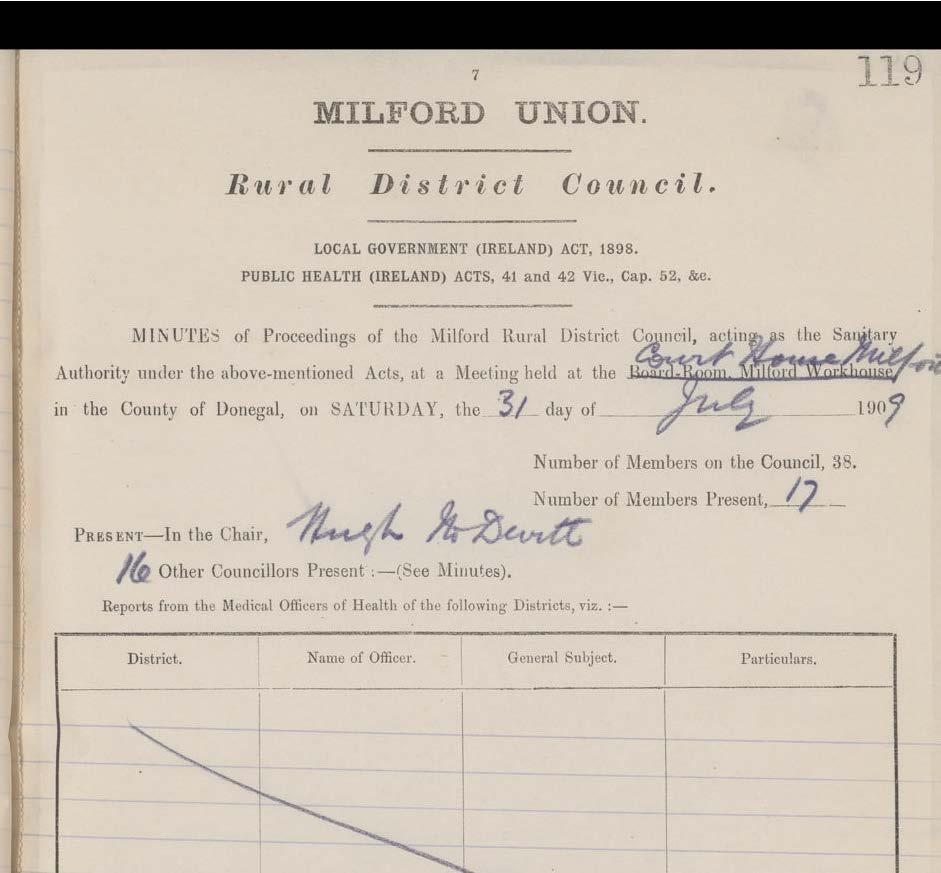 119
7
MILFORD UNION.
Rural District Council.
LOCAL GOVERNMENT (IRELAND) ACT, 1898.
PUBLIC HEALTH (IRELAND) ACTS, 41 and 42 Vic., Cap. 52, &c.
MINUTES of Proceedings of the Milford Rural District Council, acting as the Sanitary
Court House Milford
Authority under the above-mentioned Acts, at a Meeting held at the Board-Room, Milford Workhouse,
in the County of Donegal, on SATURDAY, the 31 day of July 1909
Number of Members on the Council, 38.
Number of Members Present, 17
PRESENT—In the Chair, Hugh McDevitt
16 Other Councillors Present :—(See Minutes).
Reports from the Medical Officers of Health of the following Districts, viz. :—
District. Name of Officer. General Subject. Particulars.